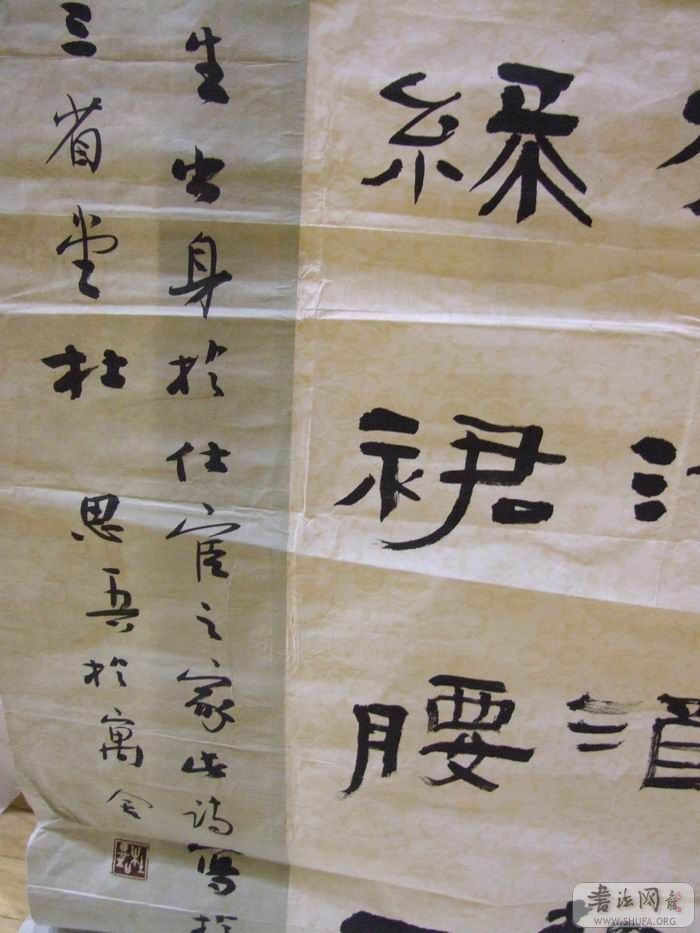 綠裙腰
生出身於仕宦之家此詩寫於
三省堂杜思吾於寓舍
书法网
WWW.SHUFA.ORG